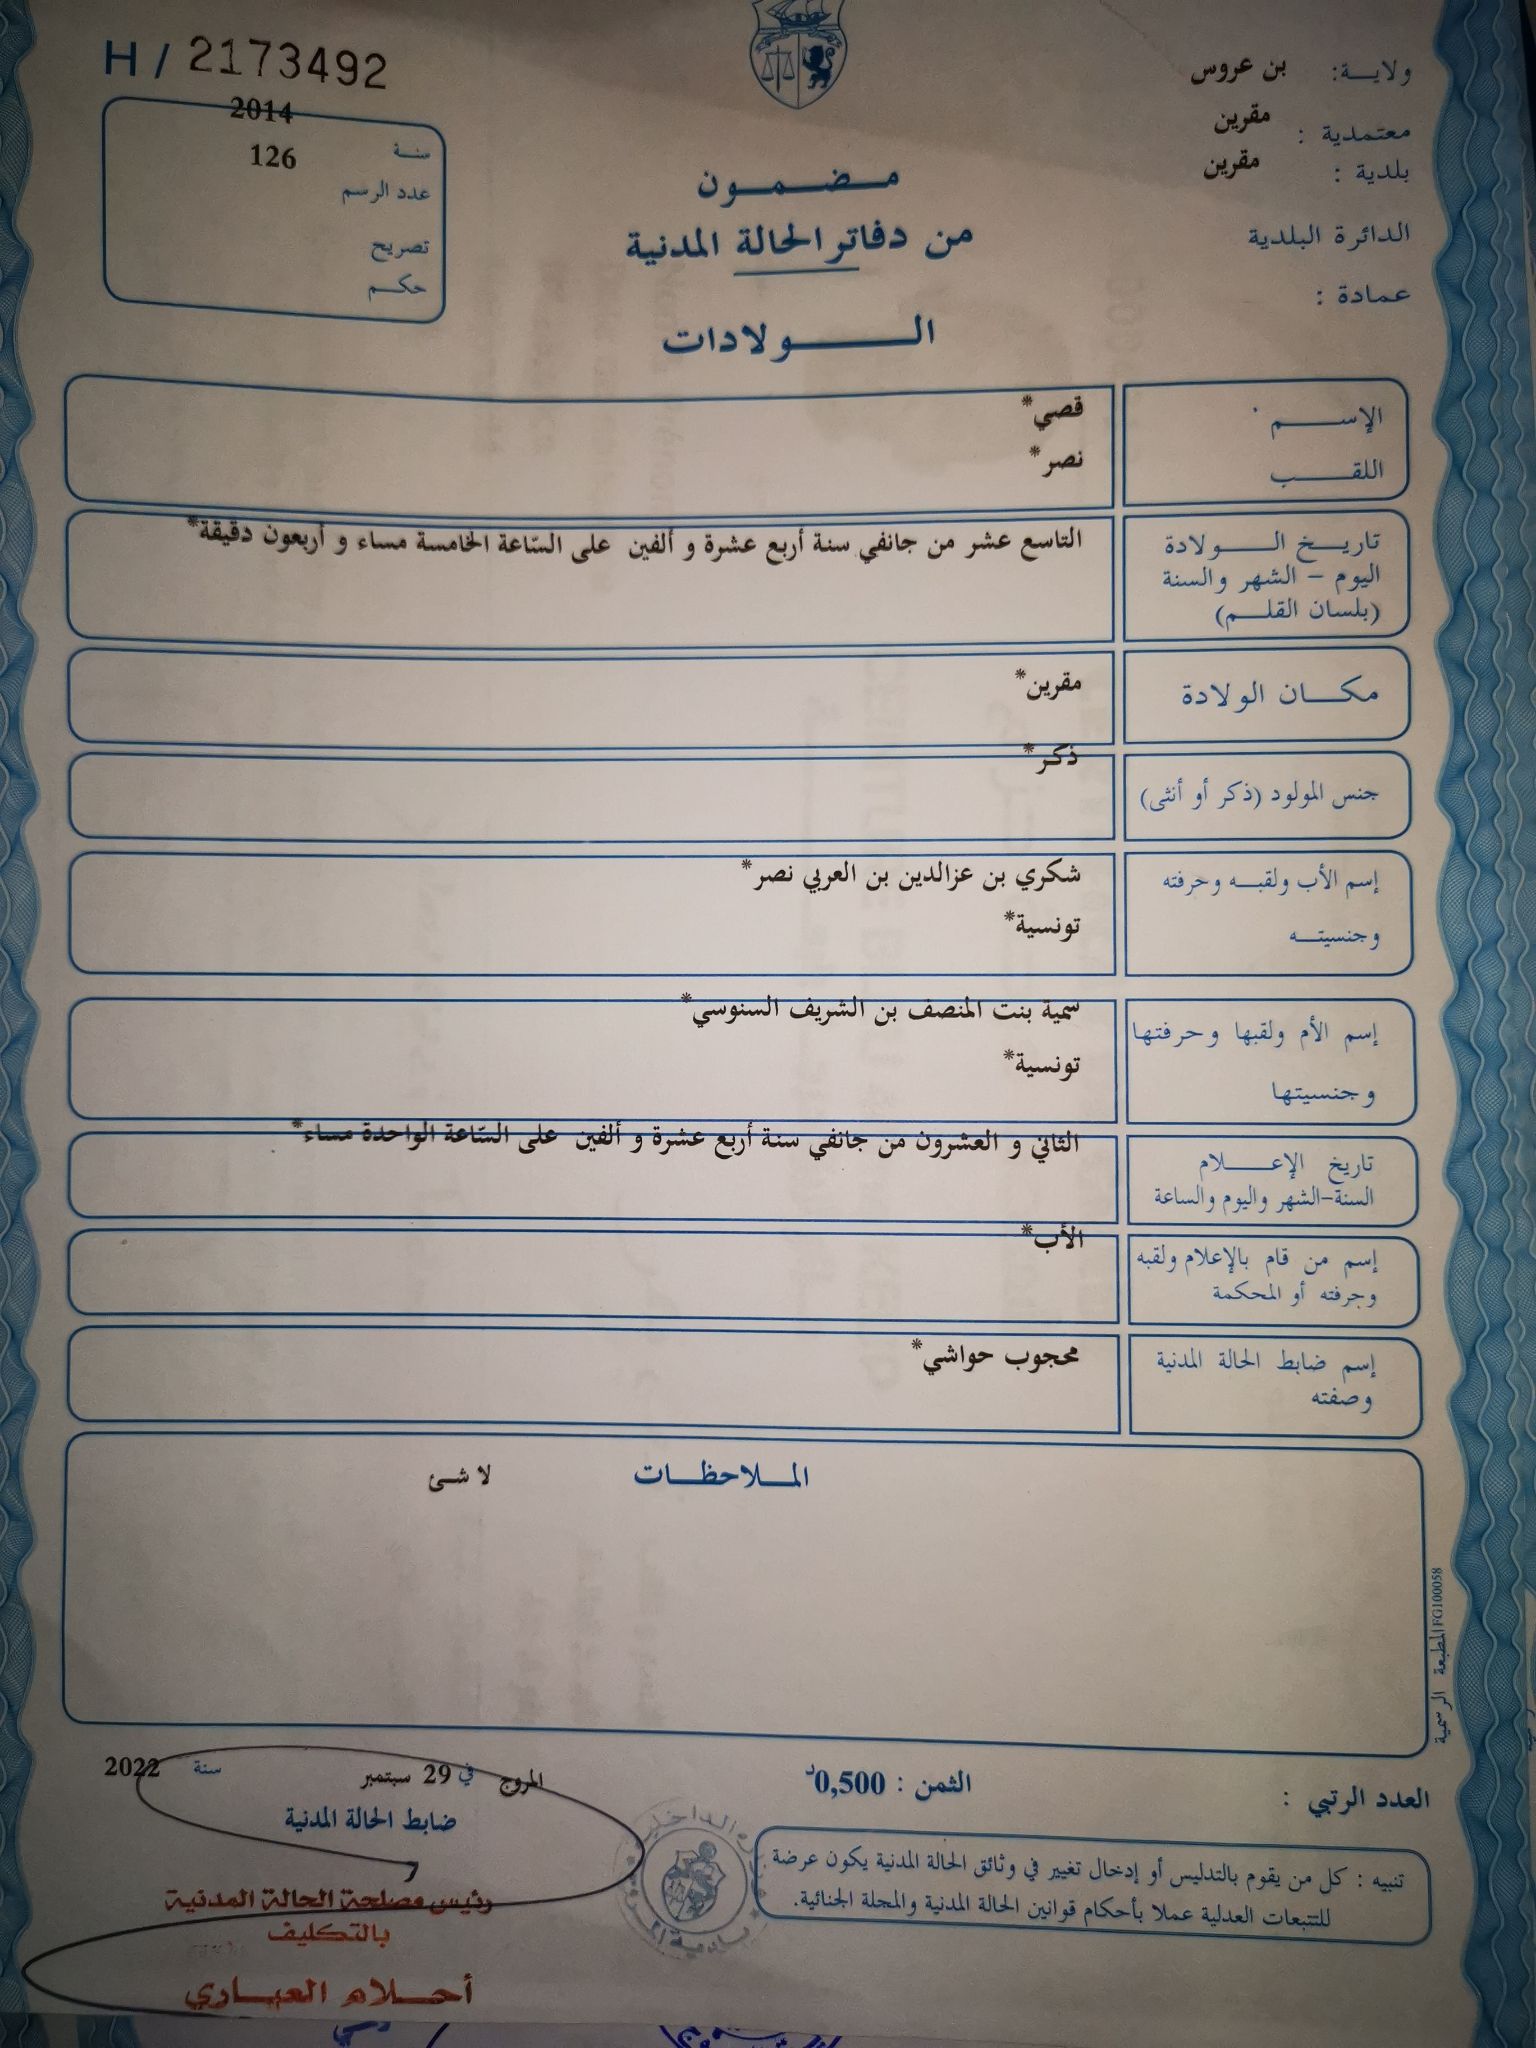 H / 2173492
ولايـــة: بن عروس
معتمدية : مقرين
بلدية : مقرين
الدائرة البلدية
عمادة :
2014
سنــة
126
عدد الرسم
تصريح
حكــم
مـــضـــمـــون
من دفاتر الحالة المدنية
الــــــولادات
الإســــــم قصي*
اللقــــــب نصر*
تاريـــخ الـــــولادة
اليوم - الشهر والسنة
(بلسان القلـــم)
التاسع عشر من جانفي سنة أربع عشرة و ألفين على السّاعة الخامسة مساء و أربعون دقيقة*
مكـــان الولادة مقرين*
جنس المولود (ذكر أو أنثى) ذكر*
إسم الأب ولقبـــه وحرفته شكري بن عزالدين بن العربي نصر*
وجنسيتـــه تونسية*
إسم الأم ولقبها وحرفتها سمية بنت المنصف بن الشريف السنوسي*
وجنسيتها تونسية*
تاريخ الإعــــــلام
السنة-الشهر واليوم والساعة
الثاني و العشرون من جانفي سنة أربع عشرة و ألفين على السّاعة الواحدة مساء*
إسم من قام بالإعلام ولقبه
وحرفته أو المحكمة
الأب*
إسم ضابط الحالة المدنية
وصفته
محجوب حواشي*
الملاحظـــات
لا شئ
المطبعة الرسمية FG100058
العدد الرتبي :
الثمن : 0,500د
المروج في 29 سبتمبر سنة 2022
ضابط الحالة المدنية
رئيس مصلحة الحالة المدنية
بالتكليف
أحـــلام العبـــاري
تنبيه : كل من يقوم بالتدليس أو إدخال تغيير في وثائق الحالة المدنية يكون عرضة
للتتبعات العدلية عملا بأحكام قوانين الحالة المدنية والمجلة الجنائية.